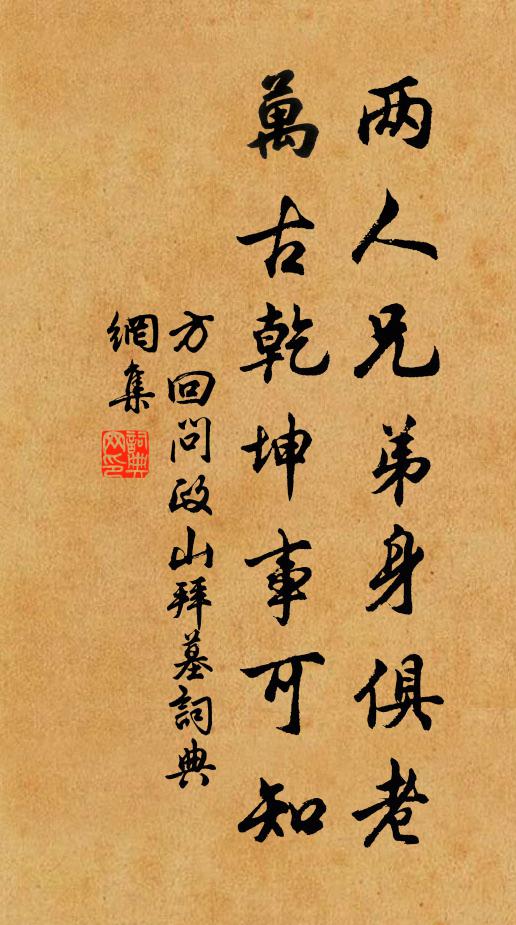 两人兄弟身俱老
萬古乾坤事可知
方回问政山拜墓詞典
網集
詞典網印